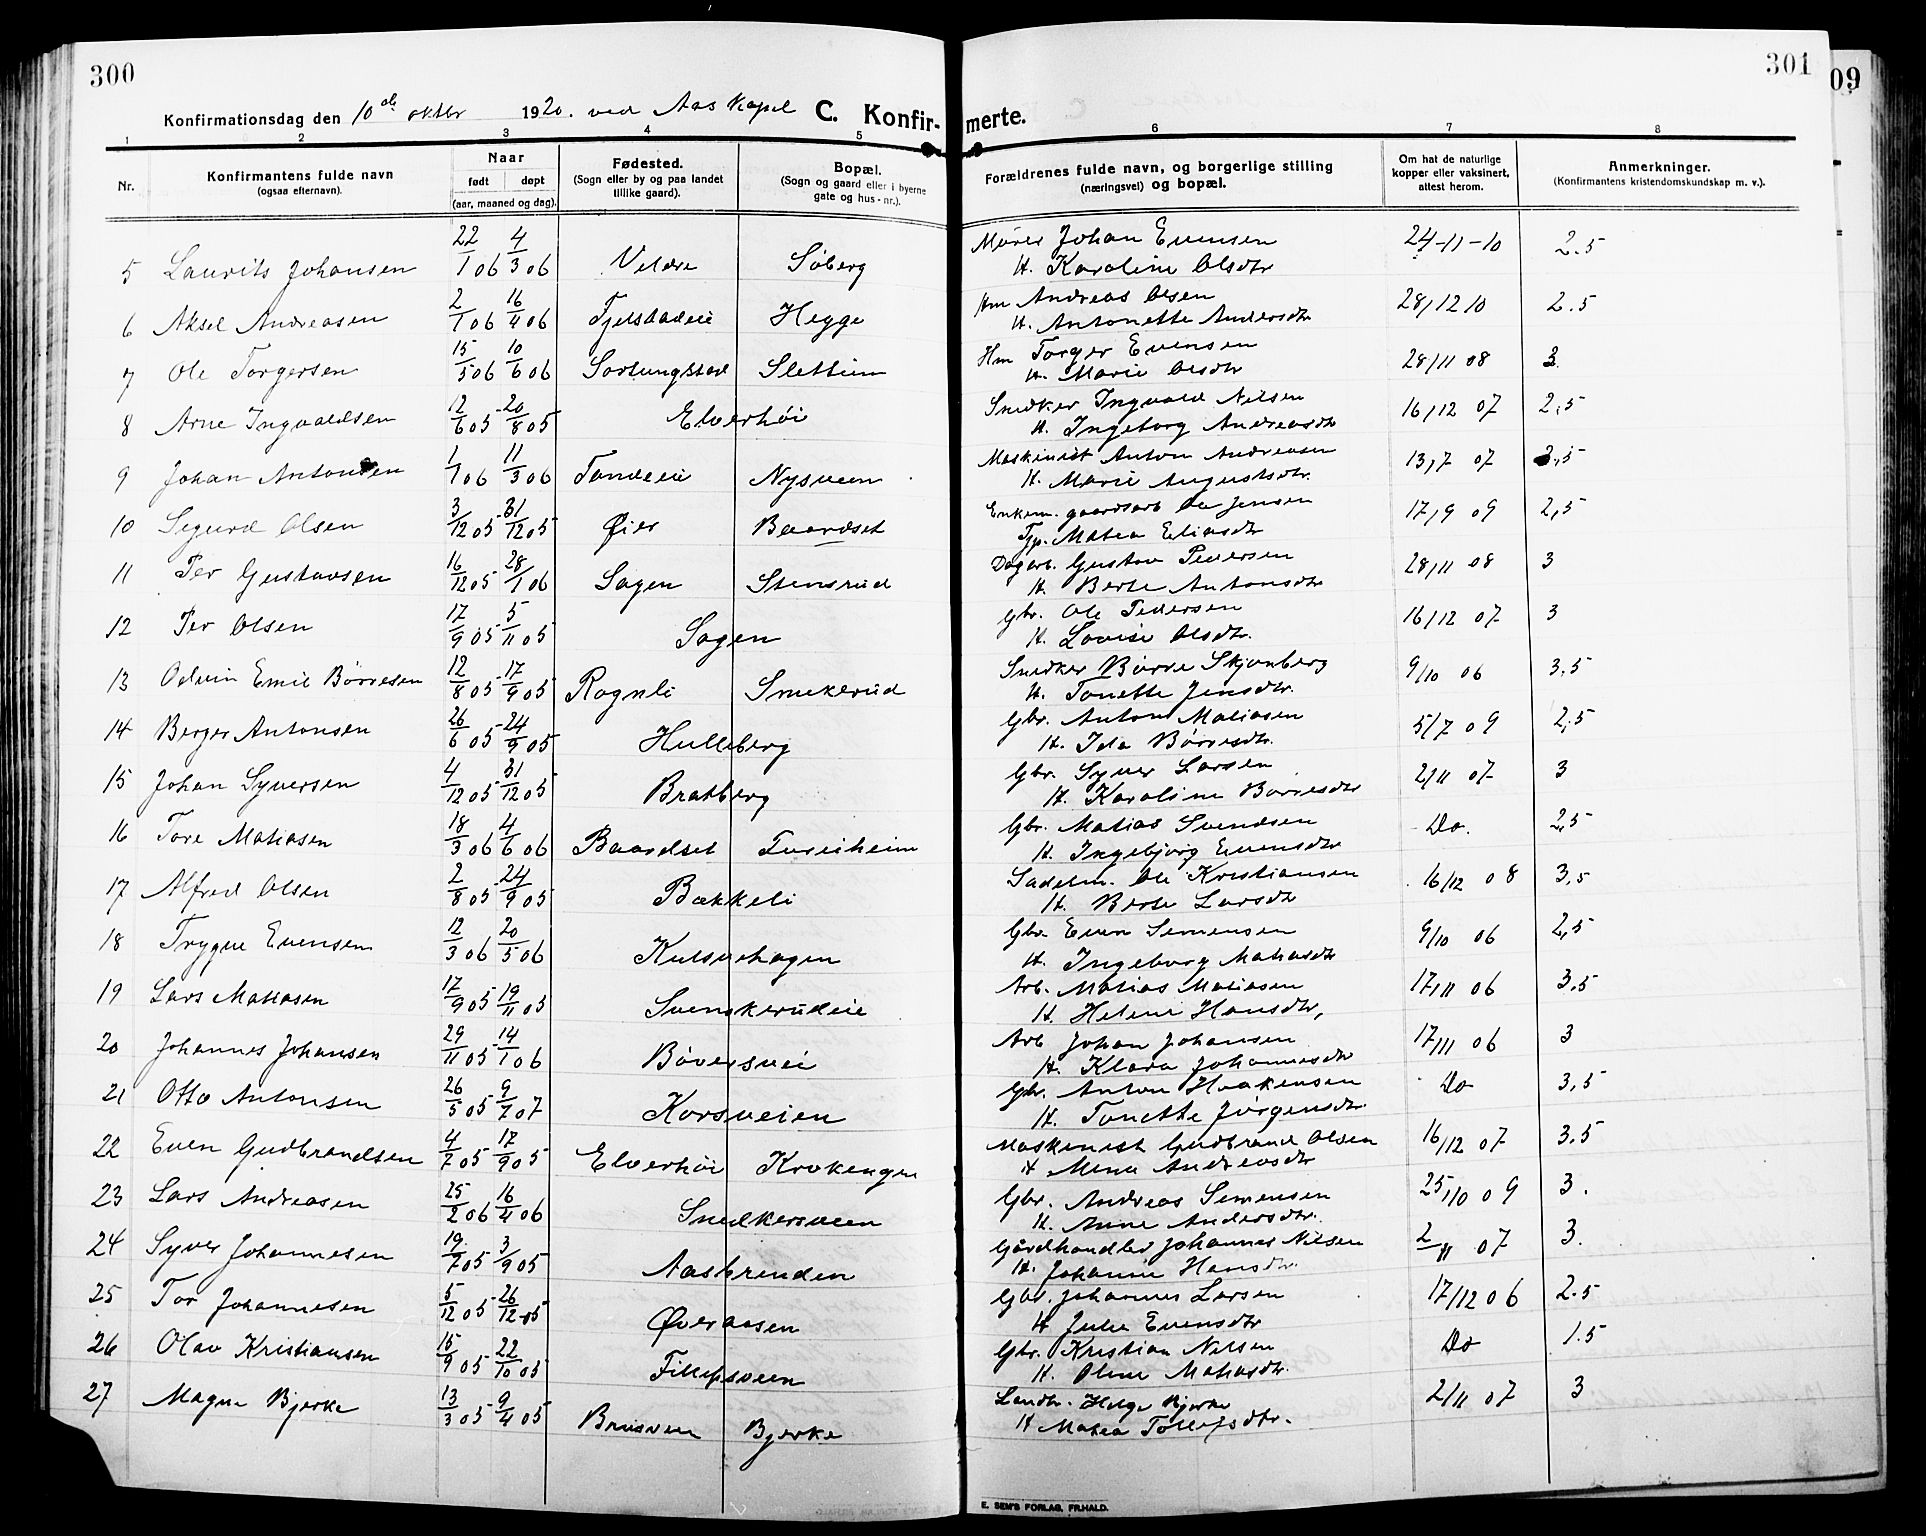 300
301
09
Konfirmationsdag den 10de oktbr 1920. ved Aas Kapel C. Konfirmerte.
1 2 3 4 5 6 7 8
Nr.
Konfirmantens fulde navn (ogsaa efternavn).
Naar født døpt (aar, maaned og dag).
Fødested. (Sogn eller by og paa landet tillike gaard).
Bopæl. (Sogn og gaard eller i byerne gate og hus-nr.).
Forældrenes fulde navn, og borgerlige stilling (næringsvei) og bopæl.
Om hat de naturlige kopper eller vaksinert, attest herom.
Anmerkninger. (Konfirmantens kristendomskundskap m. v.).
5 Laurits Johansen 22/1 06 4/3 06 Veldre Søberg Murer Johan Evensen 24-11-10 2.5
H. Karoline Olsdtr
6 Aksel Andreasen 2/1 06 16/4 06 Fjelstadeie Hegge Hm Andreas Olsen 28/12 10 2.5
H. Antonette Andersdtr
7 Ole Torgersen 15/5 06 10/6 06 Sortungstad Slettum Hm Torger Evensen 28/11 08 3.
H. Marie Olsdtr
8 Arne Ingvaldsen 12/6 05 - 20/8 05 Elverhöi Snedker Ingvald Nilsen 16/12 07 2,5
H. Ingeborg Andreasdtr
9 Johan Antonsen 1/1 06 11/3 06 Tandeeie Nysveen Maskinist Anton Andreasen 13/7 07 3,5
H. Marie Augustsdtr.
10 Sigurd Olsen 3/12 05 - 31/12 05 Øier Baardset Enkem. gaardsarb Ole Jensen 17/9 09 2,5
Tjp. Matea Eliasdtr
11 Per Gustavsen 16/12 05 - 28/1 06 Sagen Stensrud Dagarb. Gustav Pedersen 28/11 08 3
H. Berte Antonsdtr
12 Per Olsen 17/9 05 - 5/11 05 Sagen Gbr. Ole Pedersen 16/12 07 3
H. Lovise Olsdtr.
13 Odvin Emil Börresen 12/8 05 - 17/9 05 Rognli Smekerud Snedker Börre Skjønberg 9/10 06 3,5
H. Tonette Jensdtr.
14 Berger Antonsen 26/6 05 - 24/9 05 Hulleberg Gbr. Anton Matiasen 5/7 09 2,5
H. Ida Börresdtr.
15 Johan Syversen 4/12 05 - 31/12 05 Bratberg Gbr. Syver Larsen 2/11 07 3
H. Karoline Börresdtr
16 Tore Matiasen 18/3 06 4/6 06 Baardset Furuheim Gbr. Matias Svendsen Do. 2,5
H. Ingebjørg Evensdtr
17 Alfred Olsen 2/8 05 - 24/9 05 Bækkeli Sadelm. Ole Kristiansen 16/12 08 3,5
H. Berte Larsdtr
18 Trygve Evensen 12/3 06 20/5 06 Kulsvehagen Gbr. Even Simensen 9/10 06 2,5
H. Ingeborg Matiasdtr
19 Lars Matiasen 17/9 05 - 19/11 05 Svenskerudeie Arb. Matias Matiasen 17/11 06 3.5
H. Helene Hansdtr,
20 Johannes Johansen 29/11 05 - 14/1 06 Böversvei Arb Johan Johansen 17/11 06 3
H. Klara Johannesdtr
21 Otto Antonsen 26/5 05 - 9/7 07 Korsveien Gbr. Anton Haakensen Do 3,5
H. Tonette Jörgensdtr
22 Even Gudbrandsen 4/7 05 - 17/9 05 Elverhöi Krokengen Maskinist Gudbrand Olsen 16/12 07 3.5
H Mina Andreasdtr
23 Lars Andreasen 25/2 06 16/4 06 Snedkersveen Gbr. Andreas Simensen 25/10 09 3.
H. Anne Andersdtr.
24 Syver Johannesen 19/7 05 - 3/9 05 Aasbrenden Gårdhandler Johannes Nilsen 2/11 07 3.
H. Johanne Hansdtr.
25 Tor Johannesen 5/12 05 - 26/12 05 Øveraasen Gbr. Johannes Larsen 17/12 06 2.5
H Julie Evensdtr
26 Olav Kristiansen 15/9 05 - 22/10 05 Fillipsveen Gbr. Kristian Nilsen Do 1.5
H. Oline Matiasdtr.
27 Magne Bjerke 13/3 05 - 9/4 05 Brusveen Bjerke Landhr. Helge Bjerke 2/11 07 3
H Matea Tollefsdtr.
E. SEM'S FORLAG, FR.HALD.